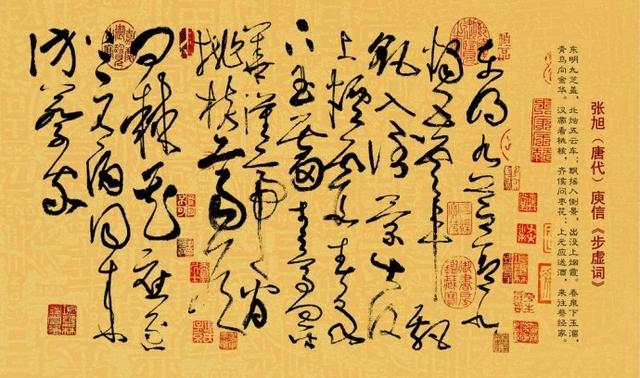 张旭（唐代）庾信《步虚词》
东明九芝盖，北烛五云车；飘摇入倒景，出没上烟霞。春泉下玉溜，
青鸟向金华。汉帝看桃核，齐侯问枣花；上元应送酒，来往蔡经家。
東明九芝蓋北
燭五雲車飄
飖入倒景出没
上煙霞春泉
下玉霤青鳥向金
華漢帝看
桃核齊侯
問棘花應逐
上元酒同來
訪蔡家